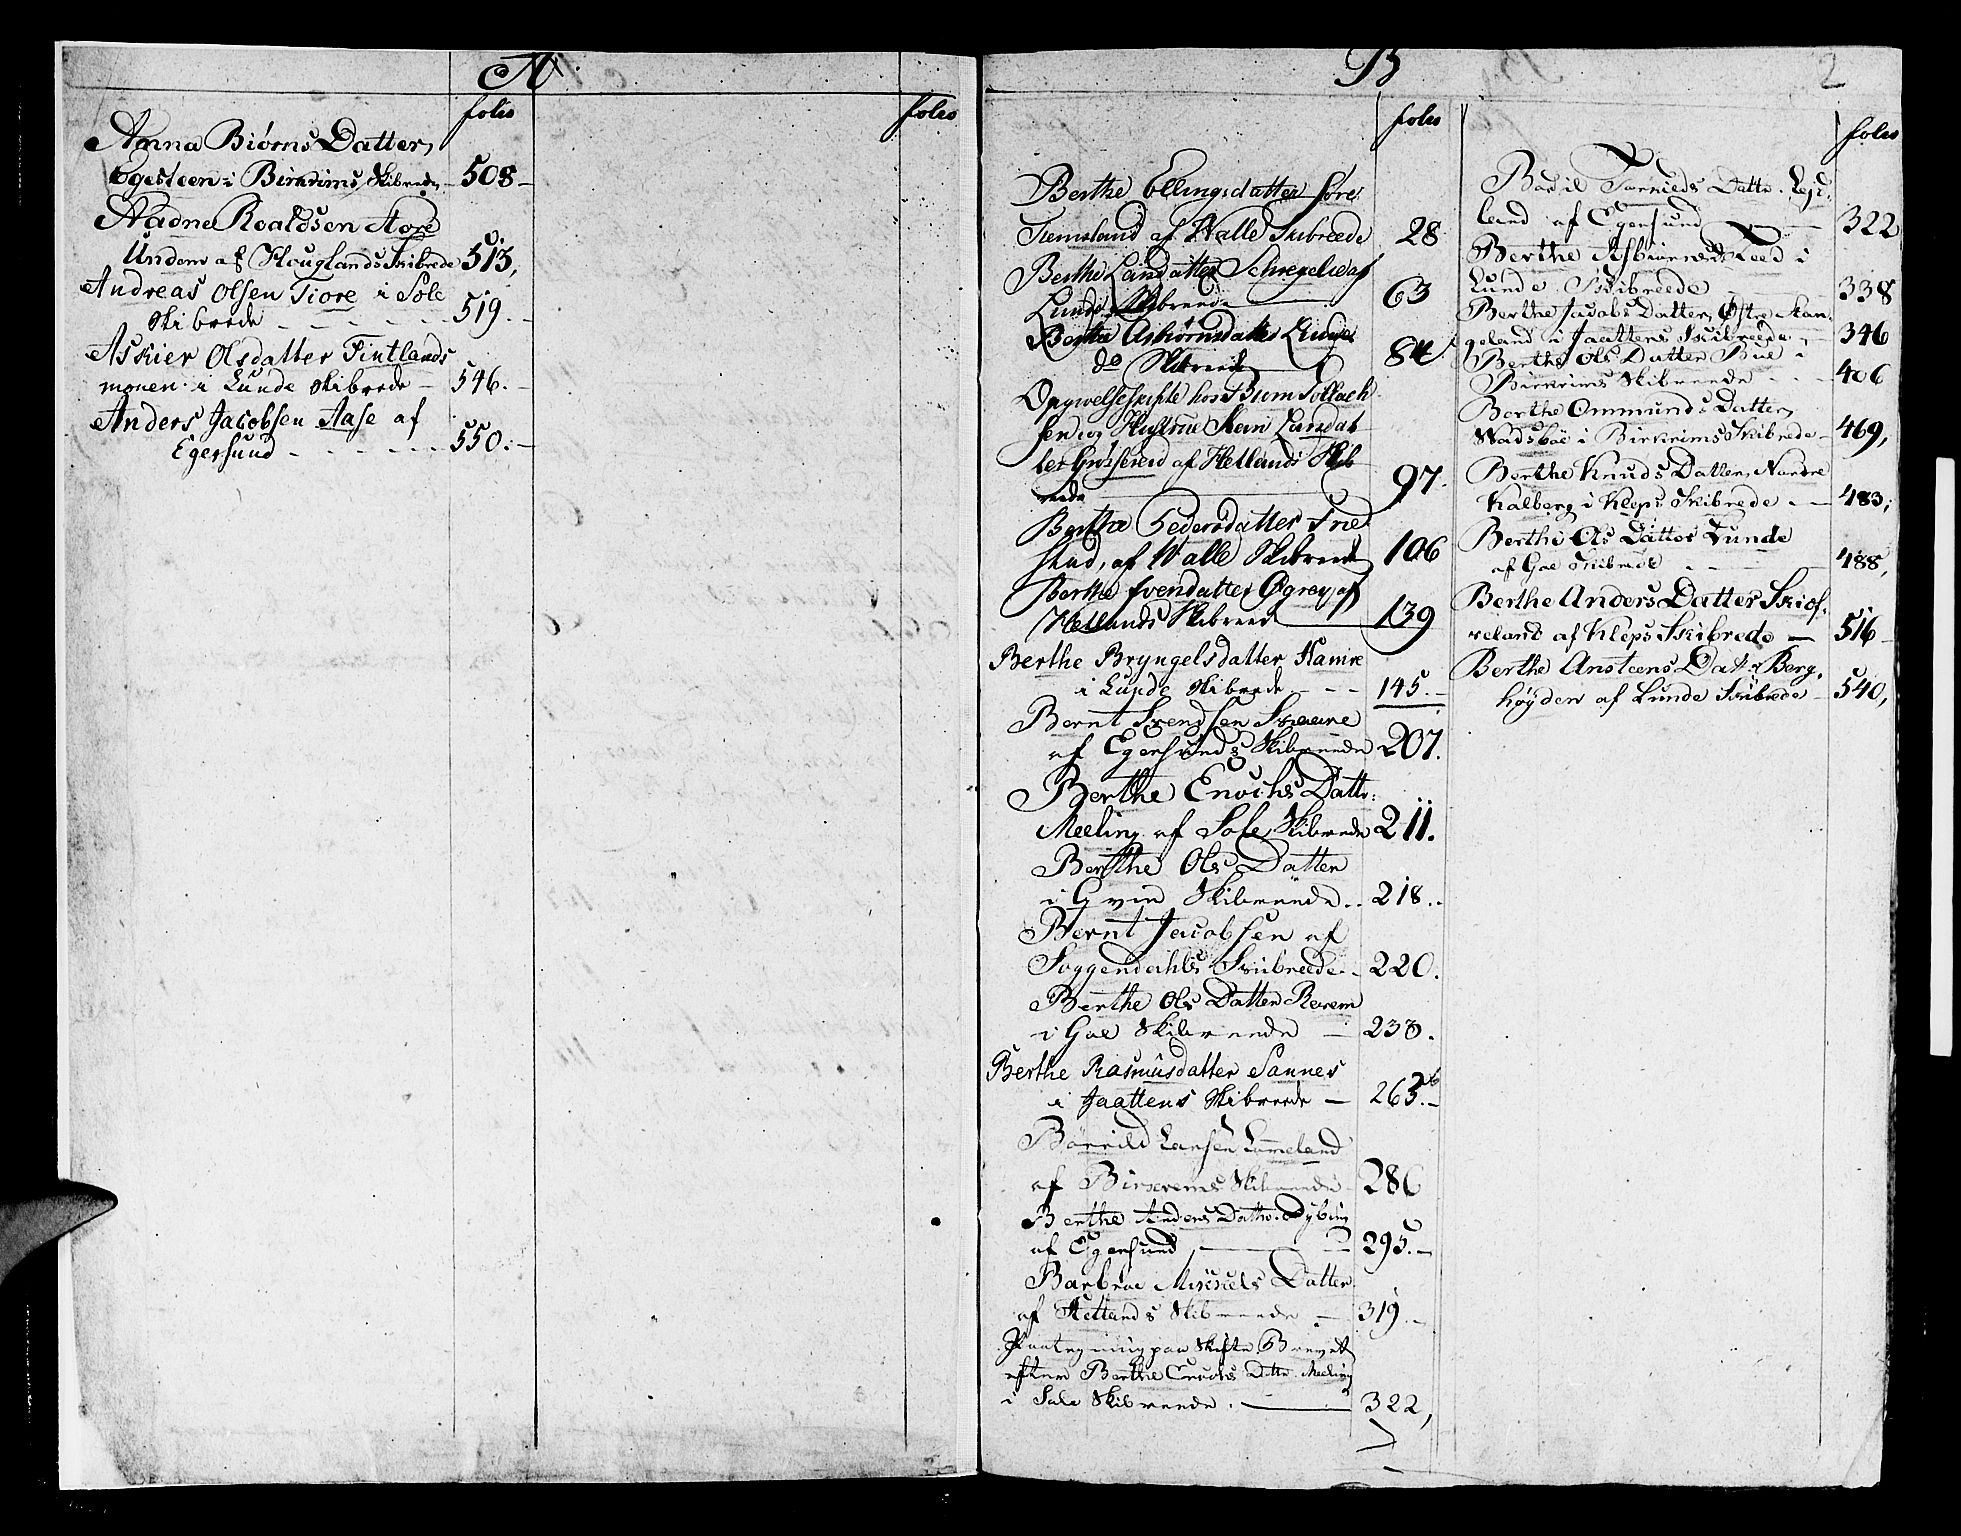 A
folio
folio
Anna Biørns Datter,
Egesteen i Birkrims Skibrede - 508 -
Aadne Roaldsen Store
Undem af Skouglands Skibrede 513,
Andreas Olsen Tiore i Sole
Skibrede - - - - - - 519. -
Askier Olsdatter Fintlands
monen i Lunde Skibrede - 546. -
Anders Jacobsen Aase af
Egersund - - - - - - 550. -
B
2
folio
Berthe Ellingsdatter Søre
Tiemsland af Walle Skibreede 28
Berthe Larsdatter af
Lunde Skibreede 63
Berthe Asbiørnsdatter
do Skibreede 84
hos
sen og Hustrue Larsdat
ter af Hetlands Skib
reede 97.
Berthe Pedersdatter
stad, af Walle Skibreede 106
Berthe Svendatter Øgrey af
Hetlands Skibreede 139
Berthe Bryngelsdatter Hamre
i Lunde Skibrede - - - 145. -
Bernt Svendsen Skaane
af Egersunds Skibreede 207.
Berthe Enochs Dattr:
Meeling af Sole Skibrede 211.
Berthe Ols Datter
i Skibreede. . 218. .
Bernt Jacobsen af
Soggendahls Skibreede. - 220.
Berthe Ols Datter Revem
i Goe Skibreede - 238.
Berthe Rasmusdatter Sannes
i Jaattens Skibreede - 263. -
Børrild Larsen Lomeland
af Birkrems Skibreede 286
Berthe Anders Dattr. Dybing
af Egersund, - 295. -
Barbroe Mikkels Datter
af Hetlands Skibreede - 319. -
Paategning paa Skifte Brevet
efter Berthe Enochs Dattr. Meeling
i Sole Skibreede. - 322,
folio
Boeil Torrieds Dattr.
land af Egersund - 322
Berthe Asbiørnsd: Leed i
Lunde Skibreede - 338
Berthe Jacobs Datter, Østre Skan-
geland i Jaattens Skibreede - 346
Berthe Ols Datter Bue i
Birkrims Skibreede - - - 406
Berthe Ommunds Datter,
Wadsboe i Birkrims Skibrede - 469,
Berthe Knuds Datter, Nordre
Kalberg i Kleps Skibrede - - 483,
Berthe Ols Datter Lunde
af Goe Skibrede - 488,
Berthe Anders Datter Skiof-
reland af Kleps Skibrede - 516 -
Berthe Ansteens Datter Berg-
høyden af Lunde Skibrede - 540,